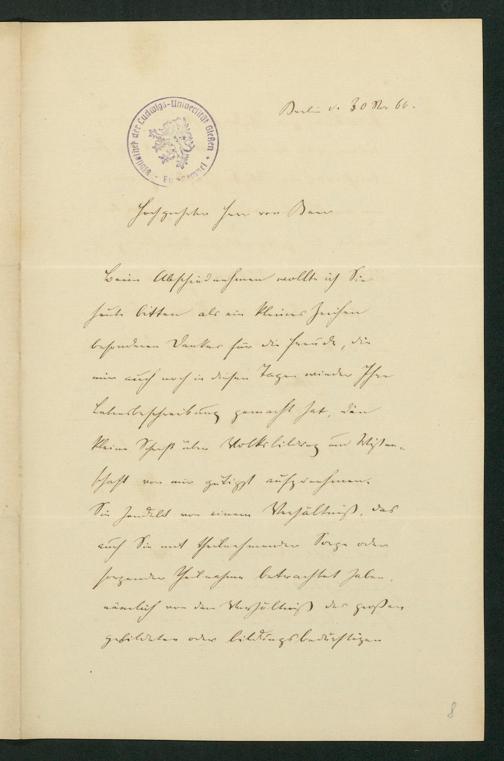 Bibliothek der Ludwigs-Universität Gießen
Berlin d. 30 Nov 66.
Hochgeehrter Herr von Baer
Beim Abschiednehmen wollte ich Sie
heute bitten als ein kleines Zeichen
besonderen Dankes für die Freude, die
mir auch noch in diesen Tagen wieder Ihre
Lebensbeschreibung gemacht hat, die
kleine Schrift über Volksbildung und Wissen-
schaft von mir gütigst aufzunehmen.
Sie handelt von einem Verhältniß, das
auch Sie mit theilnehmender Sorge oder
sorgender Theilnahme betrachtet haben,
nämlich von dem Verhältniß der großen
gebildeten oder bildungsbedürftigen
8